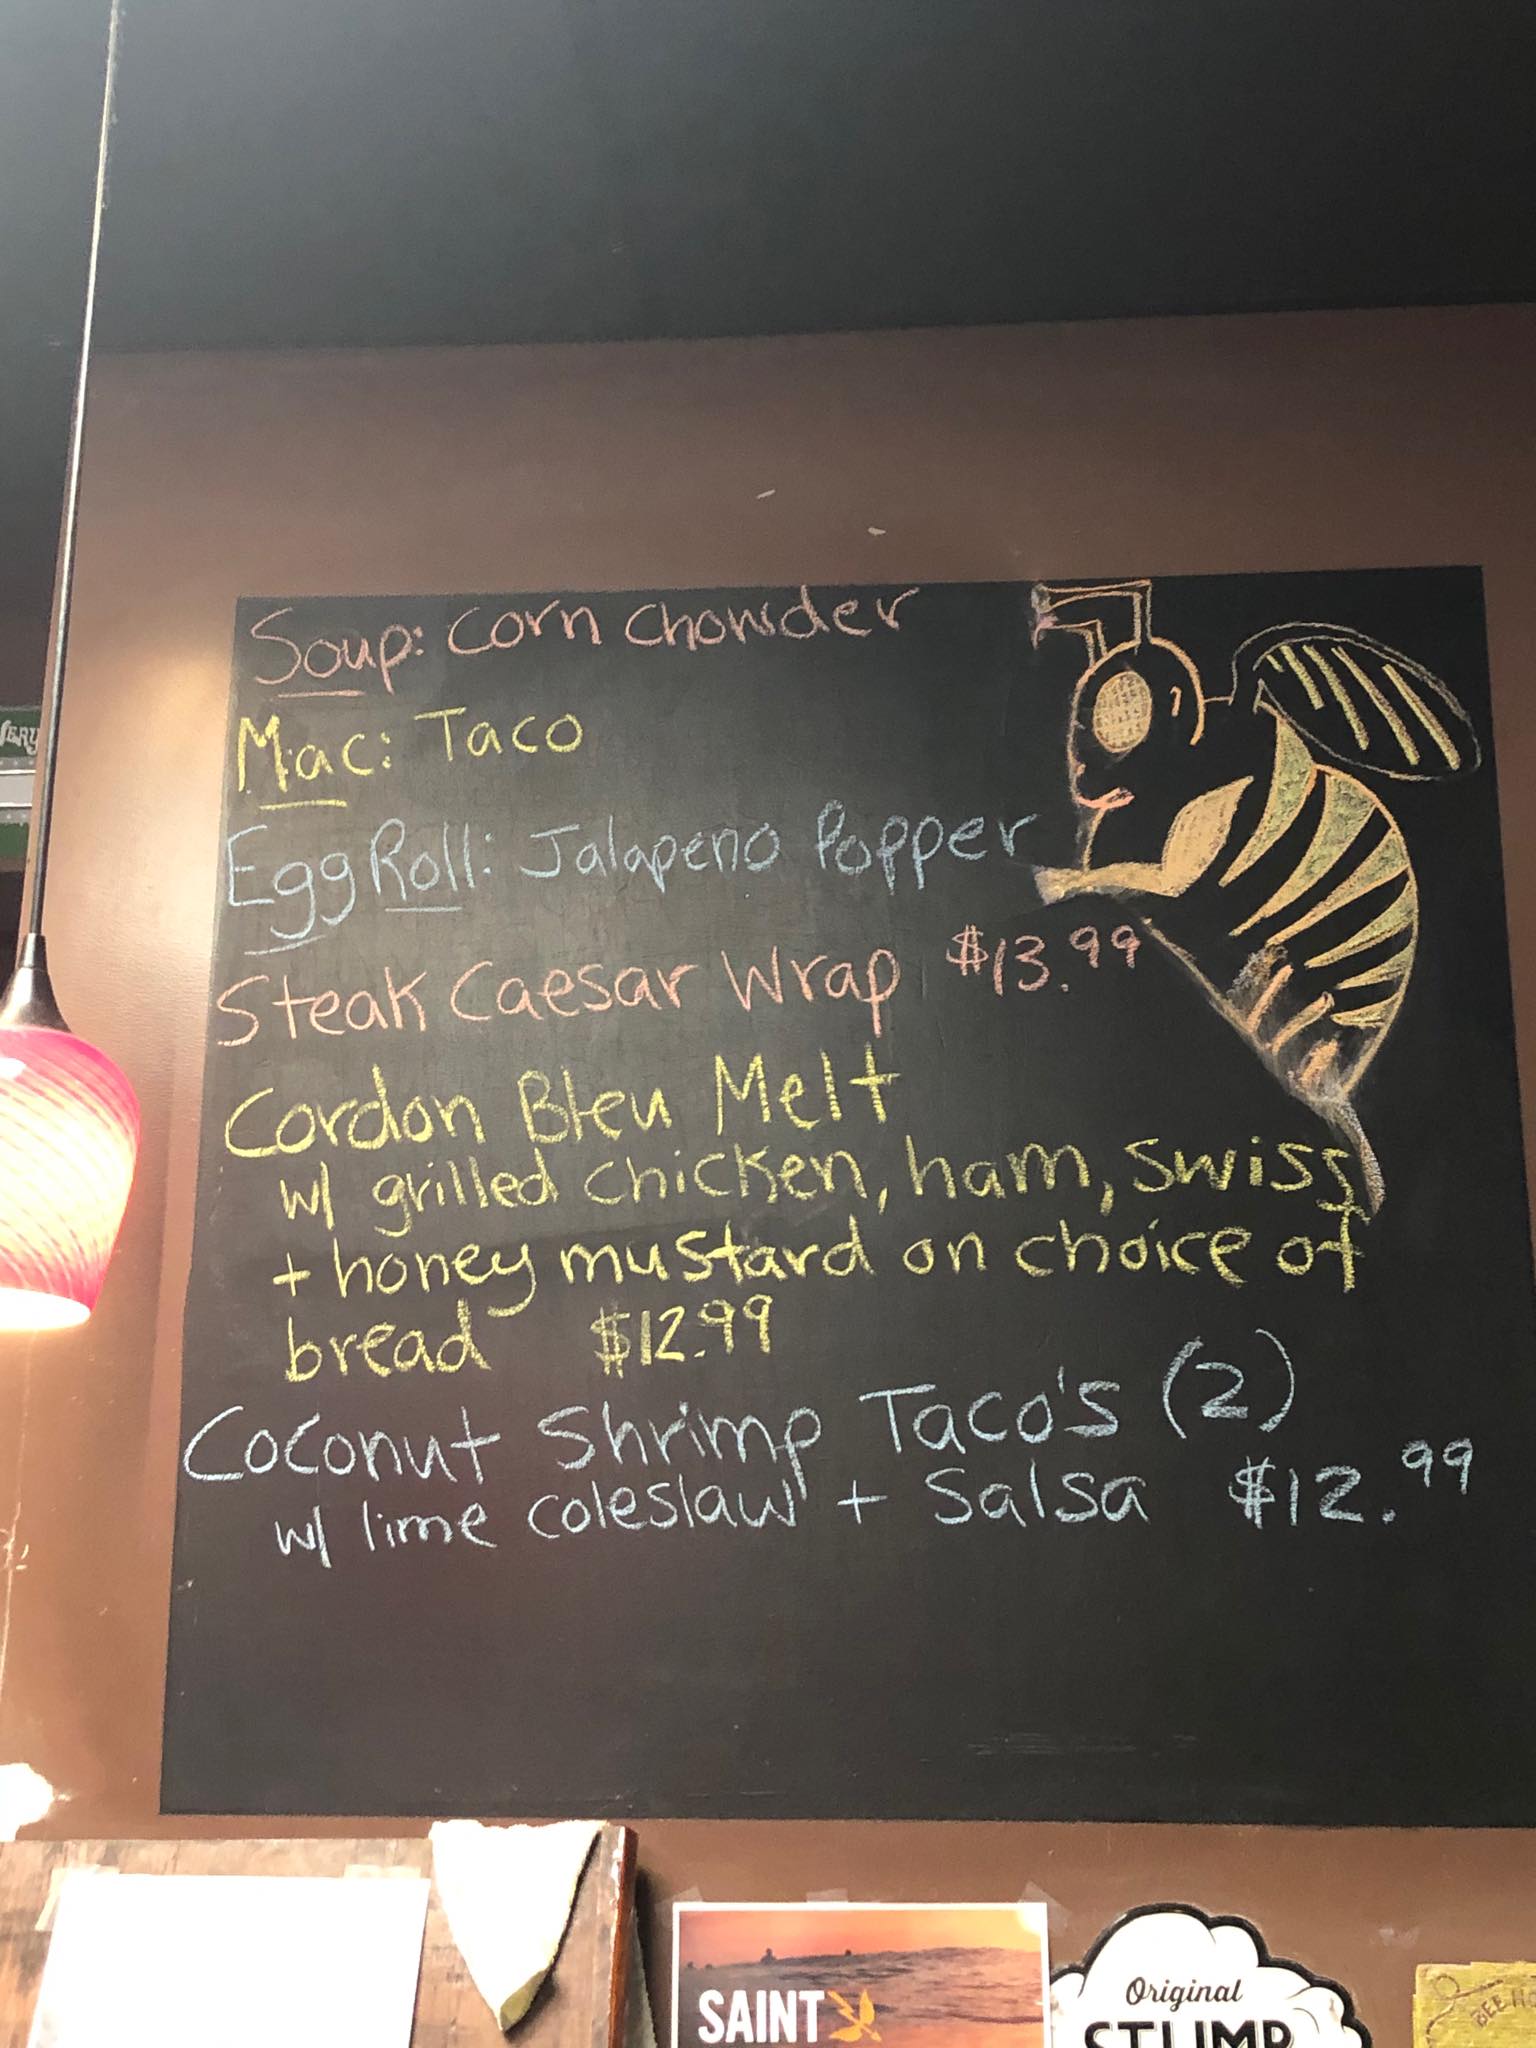 Soup: Corn Chowder
Mac: Taco
Egg Roll: Jalapeno Popper
Steak Caesar Wrap $13.99
Cordon Bleu Melt
w/ grilled chicken, ham, swiss
+ honey mustard on choice of
bread $12.99
Coconut Shrimp Taco's (2)
w/ lime coleslaw + Salsa $12.99
SAINT
Original
STUMP